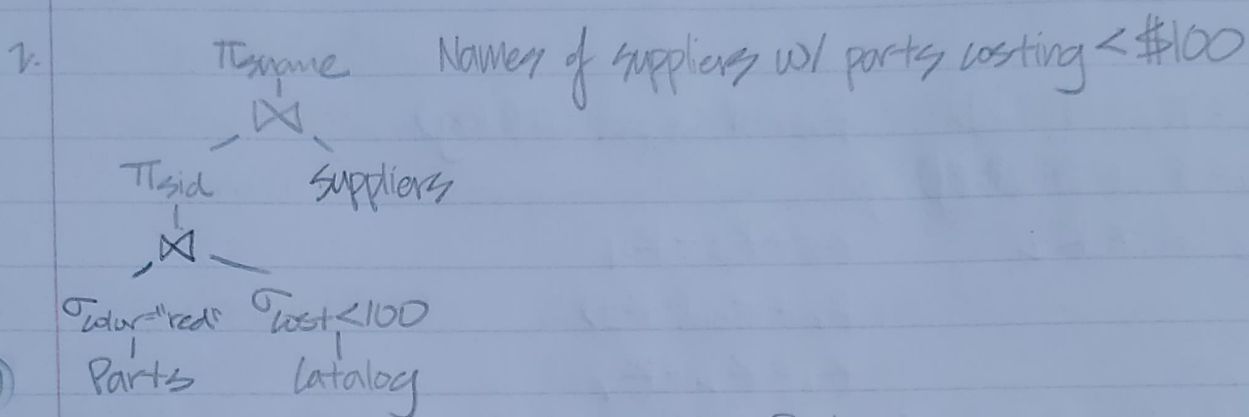 2. πsname Names of suppliers w/ parts costing < $100
⋈
πsid suppliers
⋈
σcolor="red" σcost<100
Parts Catalog